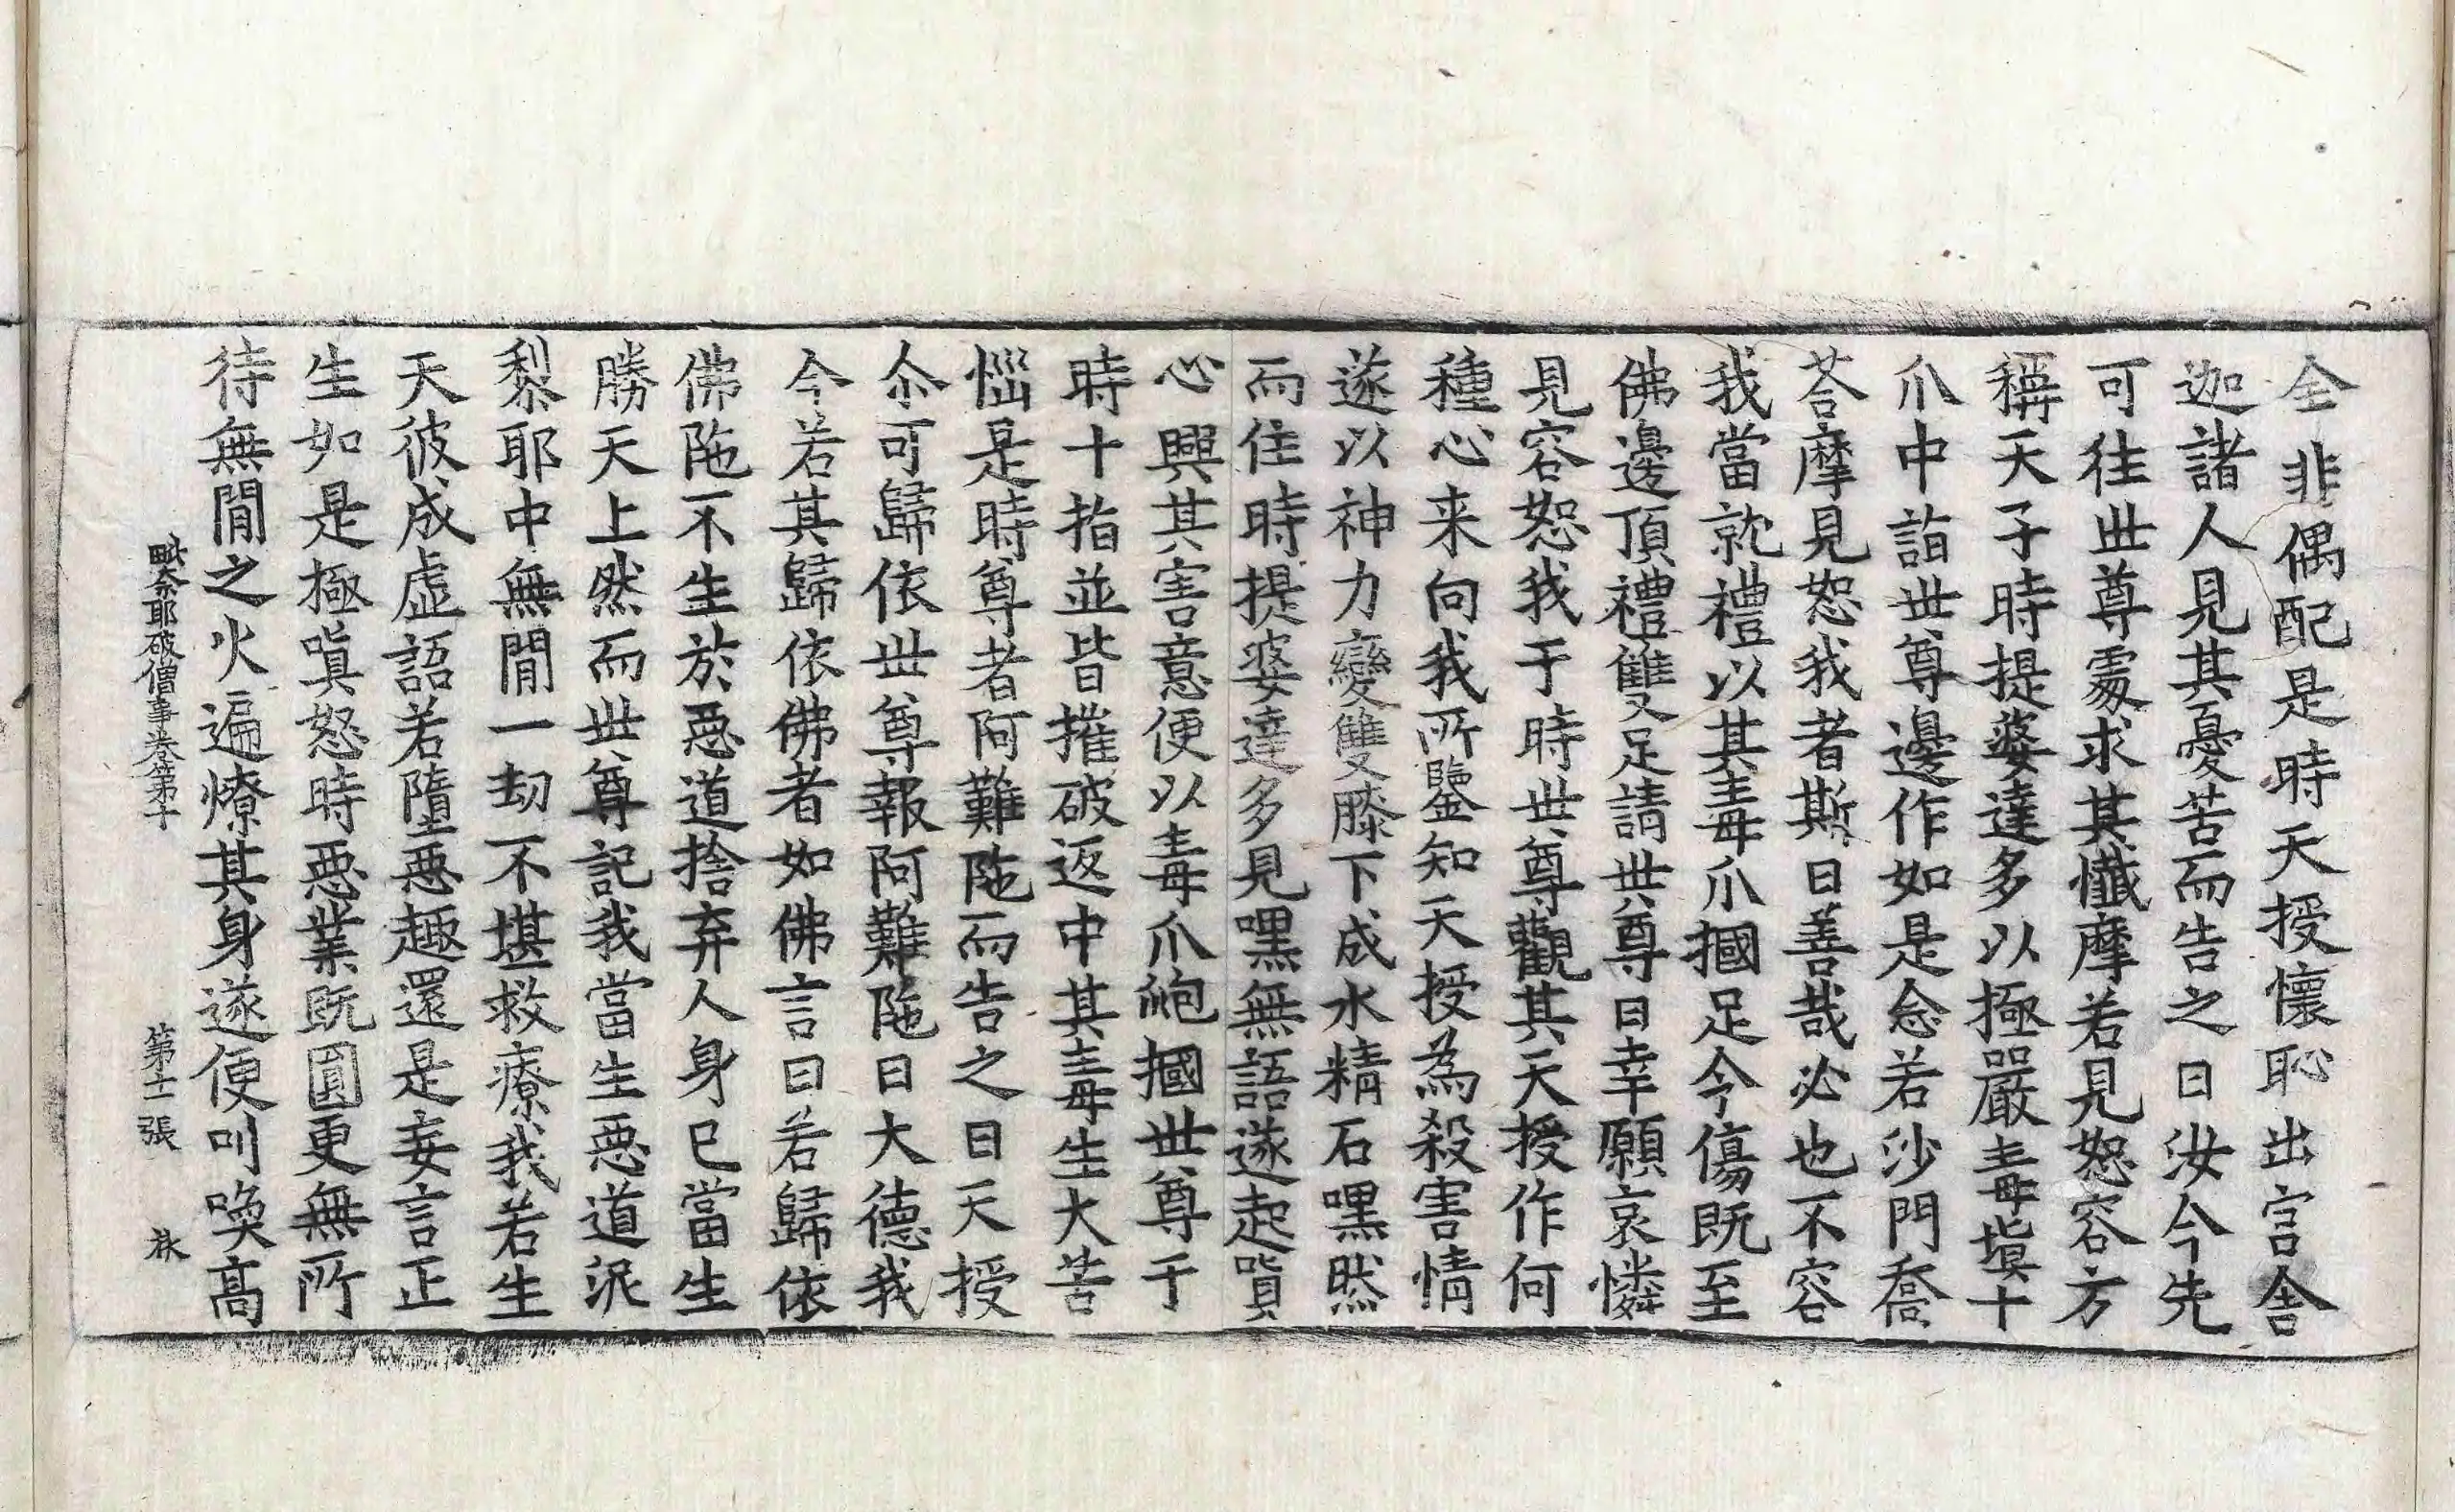 全非偶配是時天授懷恥出宮舍
迦諸人見其憂苦而告之曰汝今先
可往世尊處求其懺摩若見恕容方
稱天子時提婆達多以極嚴毒塡十
爪中詣世尊邊作如是念若沙門喬
荅摩見恕我者斯曰善哉必也不容
我當就禮以其毒爪摑足令傷既至
佛邊頂禮雙足請世尊曰幸願哀憐
見容恕我于時世尊觀其天授作何
種心来向我所鑒知天授為殺害情
遂以神力變雙膝下成水精石嘿然
而住時提婆達多見嘿無語遂起瞋
心興其害意便以毒爪䶌摑世尊于
時十指並皆摧破返中其毒生大苦
惱是時尊者阿難陁而告之曰天授
尒可歸依世尊報阿難陁曰大德我
今若其歸依佛者如佛言曰若歸依
佛陁不生於惡道捨弃人身已當生
勝天上然而世尊記我當生惡道泥
黎耶中無間一劫不堪救療我若生
天彼成虛語若墮惡趣還是妄言正
生如是極嗔怒時惡業既圓更無所
待無間之火遍燎其身遂便叫喚高
毗奈耶破僧事卷第十 第十二張